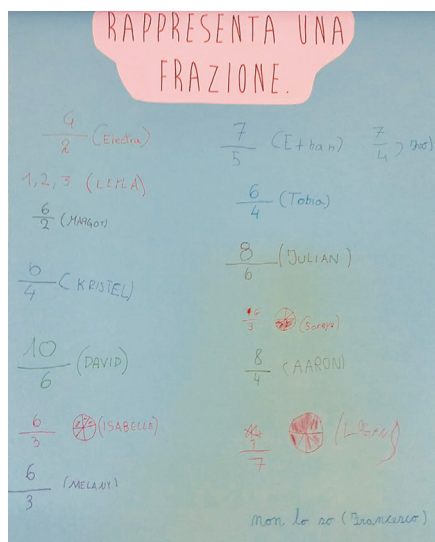 RAPPRESENTA UNA
FRAZIONE.
4/2 (Electra)
1, 2, 3 (LEILA)
6/2 (MARGOT)
6/4 (KRISTEL)
10/6 (DAVID)
6/3 (ISABELLA)
6/3 (MELANY)
7/5 (Ethan)
7/4
6/4 (Tobia)
8/6 (JULIAN)
6/3 (Soraya)
8/4 (AARON)
3/7
non lo so (Francesco)